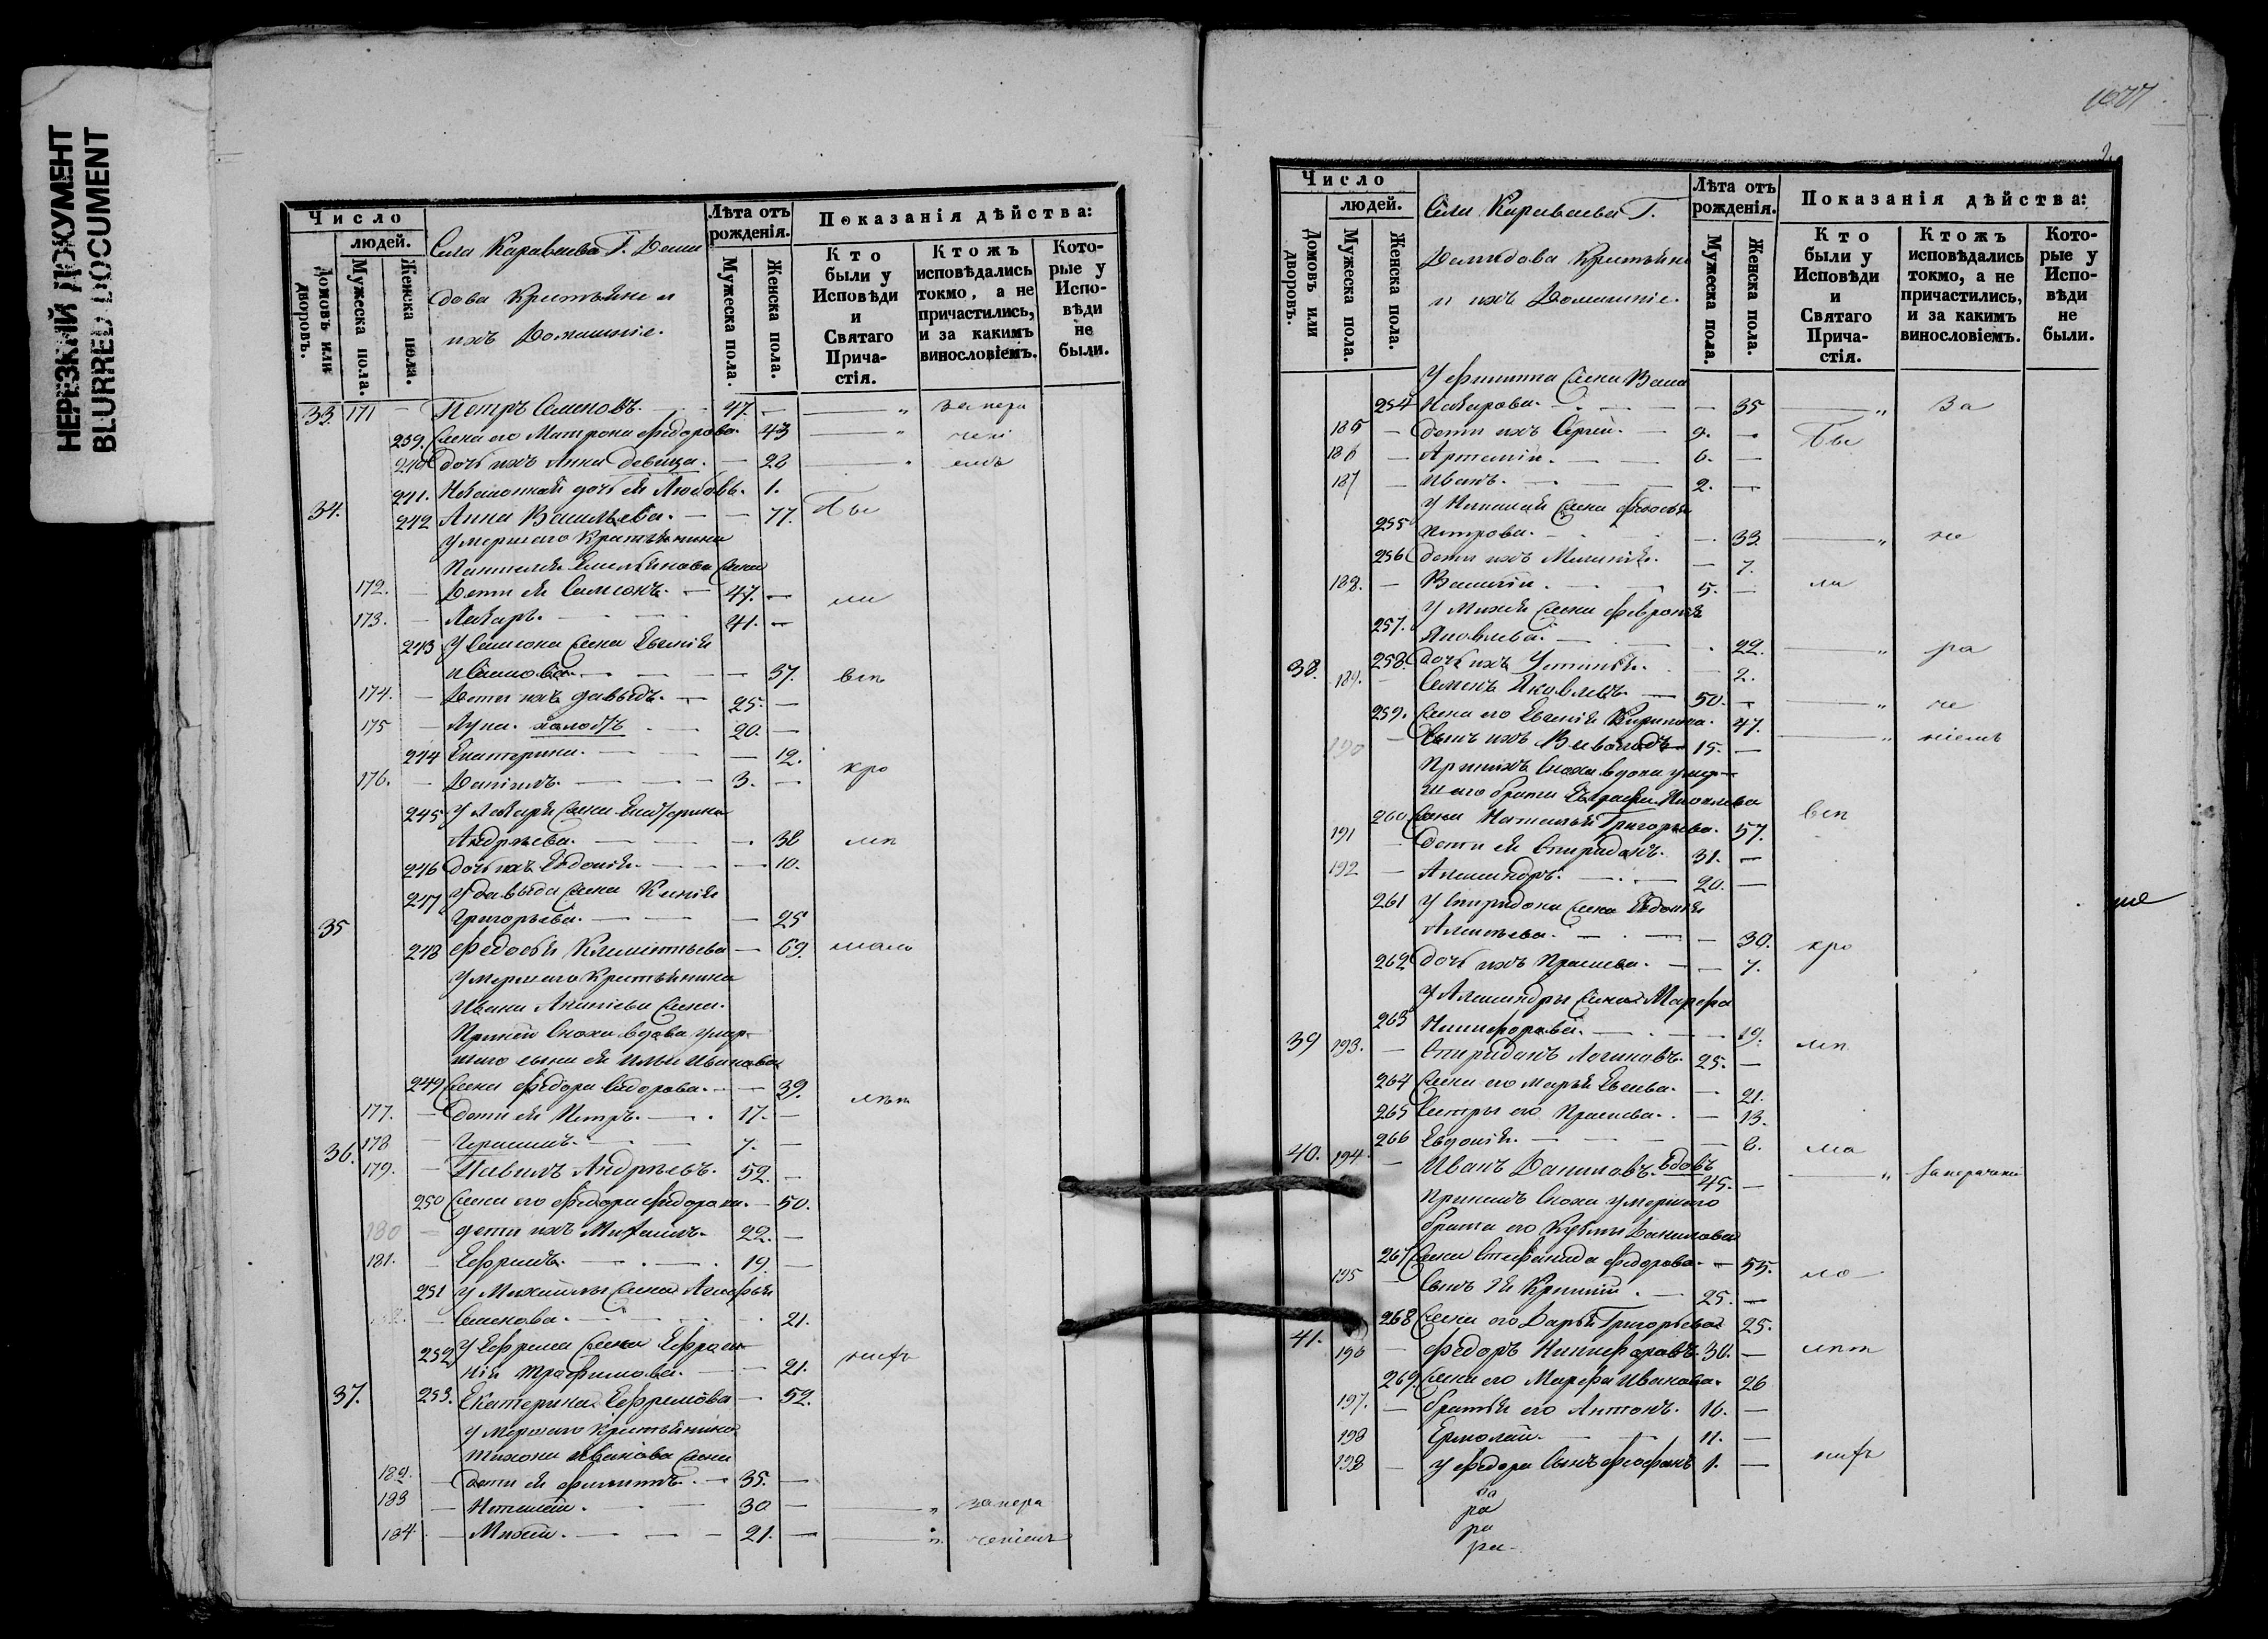 НЕРЕЗКИЙ ДОКУМЕНТ
BLURRED DOCUMENT
Число
людей.
Домовъ или дворовъ.
Мужеска пола.
Женска пола.
Села Караваева Г. Деми
дова Крестьяне и
ихъ Домашніе.
Лѣта отъ рожденія.
Мужеска пола.
Женска пола.
Показанія дѣйства:
Кто были у Исповѣди и Святаго Причастія.
Ктожъ исповѣдались токмо, а не причастились, и за какимъ винословіемъ.
Которые у Исповѣди не были.
33. 171 — Петръ Семеновъ. 47. — „ За нера
239. Жена его Матрона Федорова. 43 — „ чені
240 дочь ихъ Анна девица. — 28 — „ емъ
241. Незаконная дочь ея Любовь. 1.
34. 242 Анна Васильева. — 77. Бы
умершаго Крестьянина
Пантелея Емельянова жена
172. — Дети ея Самсонъ. — 47. — ли
173. — Лазарь. 41. —
243 У Самсона жена Евгенія
Иванова. — 37. всѣ
174. — Дети ихъ Давыдъ. — 25. —
175 — Лука. холостъ 20. —
244 Екатерина. — 12.
176. — Даніилъ. — 3. — кро
245 У Лазаря жена Екатерина
Андреева. — 38 мѣ
246 Дочь ихъ Евдокія. — 10.
247 У Давыда жена Ксенія
Григорьева. — 25
35
248 Федосья Климентьева — 69. мало
Умершаго Крестьянина
Ивана Антипьева жена.
При ней сноха вдова умер-
шаго сына ея Ильи Иванова
249 жена Федора Сидорова. — 39. лѣт
177. — Дети ея Петръ. — 17. —
178 — Герасимъ. — 7. —
36. 179. — Павелъ Андреевъ. 52. —
250 Жена его Федора Федорова. — 50.
180 — дети ихъ Михаилъ. 22. —
181. — Ефремъ. 19. —
251 У Михаилы жена Агафья
Семенова. 21.
252 У Ефрема жена Ефросин
нія Трофимова. — 21. нихъ
37. 253. Екатерина Ефремова — 52.
умершаго Крестьянина
Тихона Иванова жена
182. — Дети ея Филиппъ. — 35. —
183 — Николай. 30 — „ за нера
184. — Михей. — 21. — „ ченіемъ
1077
Число
людей.
Домовъ или дворовъ.
Мужеска пола.
Женска пола.
Села Караваева Г.
Демидова Крестьяне
и ихъ Домашніе.
Лѣта отъ рожденія.
Мужеска пола.
Женска пола.
Показанія дѣйства:
Кто были у Исповѣди и Святаго Причастія.
Ктожъ исповѣдались токмо, а не причастились, и за какимъ винословіемъ.
Которые у Исповѣди не были.
У Филиппа жена Васа
254 Назарова. — 35 — „ За
185 — дети ихъ Сергей. — 9. — Бы
186 — Артемій. 6. —
187 — Иванъ. 2. —
У Николая жена Федосья
255 Петрова. 33. — „ не
256 дети ихъ Меланія. — 7.
188. — Василій. 5. — ли
У Михея жена Февронія
257. Яковлева. 22. — „ ра
258. дочь ихъ Устинья. — 2.
38. 189. — Семенъ Яковлевъ. — 50. — „ че
259. жена его Евгенія Кирилова. 47.
190 — Сынъ ихъ Всеволодъ — 15. — „ ніемъ
При нихъ Сноха вдова умер-
шаго брата
260 жена Наталья Григорьева. 57. всѣ
191 — Дети ея Спиридонъ. 31. —
192 — Александръ. 20. —
261 У Спиридона жена Евдокія
Алексеева. — 30.
262 дочь ихъ Прасковья. — 7. кро
У Александры жена Марфа
263 Никифорова. — 19.
39 193. — Спиридонъ Логиновъ. 25. — мѣ
264 жена его Марья Евсеева. — 21.
265 Сестры его Прасковья. — 13.
266 Евдокія. — 8.
40. 194 — Иванъ Даниловъ. вдовъ 45. — ма „ За нераченіе
При немъ Сноха умершаго
брата его Кузьмы Данилова
267 жена Степанида Федорова. — 55. ло
195 — Сынъ Ея 25. —
268 жена его Дарья Григорьева 25.
41. 196 — Федоръ Никифоровъ. 30. — лѣт
269. жена его Марфа Иванова. 26
197. — братья его Антонъ. 16. —
198 Ермолай. — 11. —
198 — У Федора Сынъ Феофанъ 1. — нихъ
ра
ра
ра